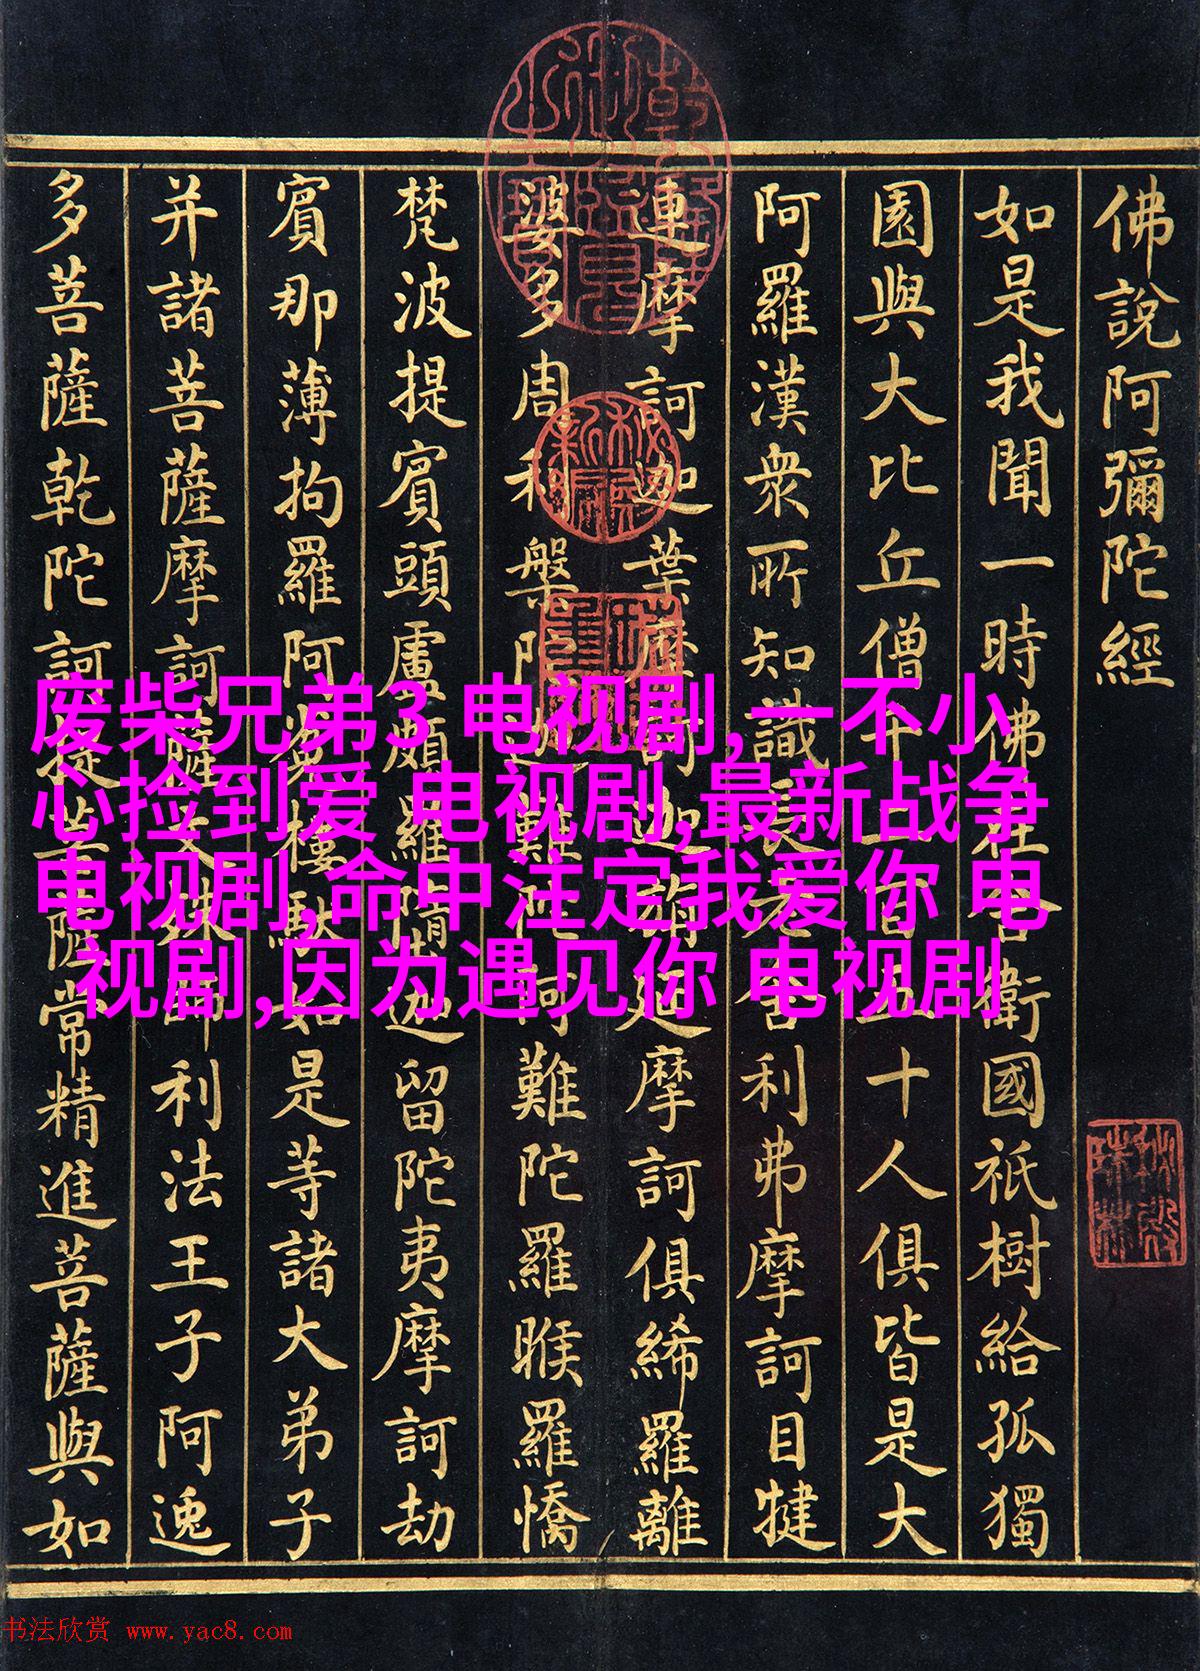 佛說阿彌陀經
如是我聞一時佛在舍衛國祇樹給孤獨
園與大比丘僧千二百五十人俱皆是大
阿羅漢衆所知識長老舍利弗摩訶目犍
連摩訶迦葉摩訶迦旃延摩訶俱絺羅離
婆多周利槃陀迦難陀阿難陀羅睺羅憍
梵波提賓頭盧頗羅墮迦留陀夷摩訶劫
賓那薄拘羅阿㝹樓馱如是等諸大弟子
并諸菩薩摩訶薩文殊師利法王子阿逸
多菩薩乾陀訶提菩薩常精進菩薩與如
废柴兄弟3 电视剧,一不小
心捡到爱 电视剧,最新战争
电视剧,命中注定我爱你 电
视剧,因为遇见你 电视剧
书法欣赏 www.yac8.com